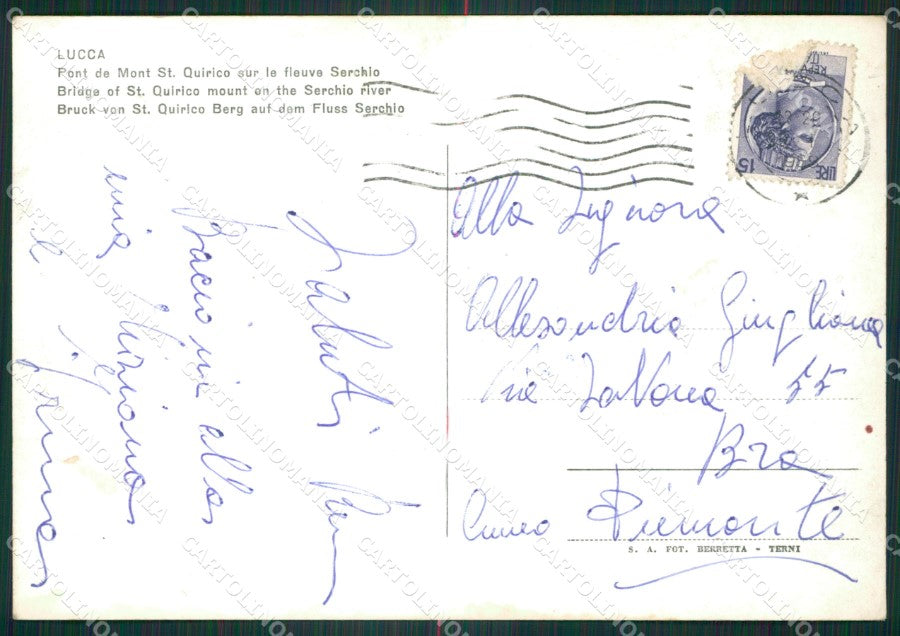 LUCCA
Pont de Mont St. Quirico sur le fleuve Serchio
Bridge of St. Quirico mount on the Serchio river
Bruck von St. Quirico Berg auf dem Fluss Serchio
LIRE 15
Alla Signora
Allesandria Giugliana
Via Savona 55
Bra
Cuneo Piemonte
S. A. FOT. BERRETTA - TERNI
Saluti
Bacioni alla
mia
e